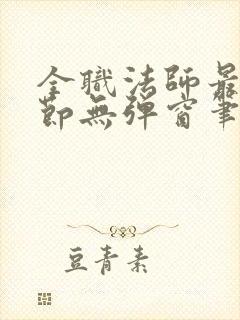 全職法師最
節無彈窗筆
豆青素